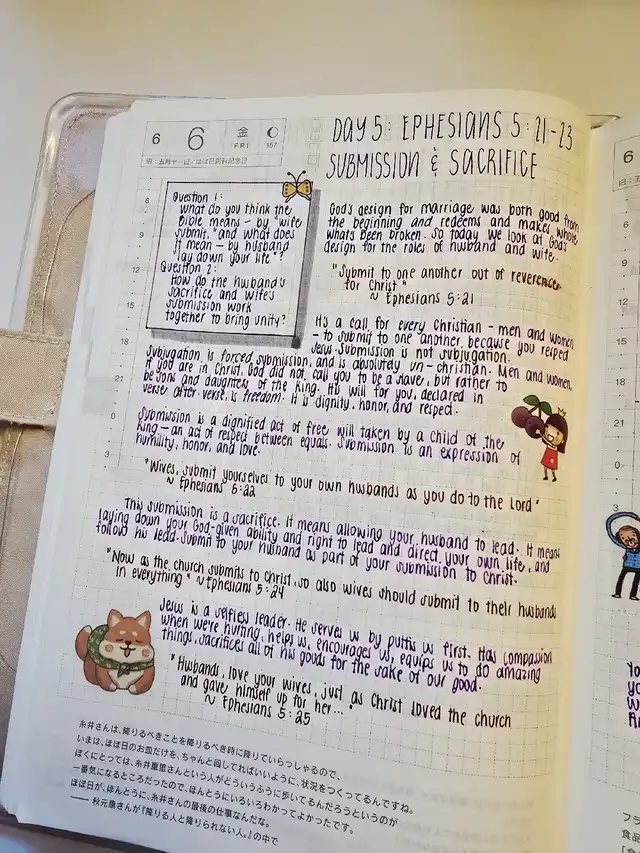 6
6
金
FRI
157
旧:五月十一日/ほぼ日創刊記念日
DAY 5: EPHESIANS 5:21-23
SUBMISSION & SACRIFICE
Question 1:
What do you think the
Bible means - by "wife
submit," and what does
it mean - by husband
"lay down your life"?
Question 2:
How do the husband's
sacrifice and wife's
submission work
together to bring unity?
God's design for marriage was both good from
the beginning and redeems and makes whole
what's been broken. So today we look at God's
design for the roles of husband and wife.
"Submit to one another out of reverence
for Christ"
~ Ephesians 5:21
It's a call for every Christian - men and women
- to submit to one another because you respect
Jesus. Submission is not subjugation.
Subjugation is forced submission, and is absolutely un-christian. Men and women,
if you are in Christ, God did not call you to be a slave, but rather to
be sons and daughters of the King. His will for you, declared in
verse after verse, is freedom. It is dignity, honor, and respect.
Submission is a dignified act of free will taken by a child of the
King - an act of respect between equals. Submission is an expression of
humility, honor, and love.
"Wives, submit yourselves to your own husbands as you do to the Lord"
~ Ephesians 5:22
This submission is a sacrifice. It means allowing your husband to lead. It means
laying down your God-given ability and right to lead and direct your own life, and
follow his lead. Submit to your husband as part of your submission to Christ.
"Now as the church submits to Christ, so also wives should submit to their husbands
in everything" ~ Ephesians 5:24
Jesus is a selfless leader. He serves us by puttis us first. Has compassion
when we're hurting, helps us, encourages us, equips us to do amazing
things, sacrifices all of his goods for the sake of our good.
"Husbands, love your wives, just as Christ loved the church
and gave himself up for her..."
~ Ephesians 5:25
糸井さんは、降りるべきことを降りるべき時に降りていらっしゃるので、
いまは、ほぼ日のお皿だけを、ちゃんと回してればいいように、状況をつくってるんですね。
ぼくにとっては、糸井重里さんという人がどういうふうに歩いてるんだろうというのが
一番気になるところだったので、ほんとうにいろいろわかってよかったです。
ほぼ日が、ほんとうに、糸井さんの最後の仕事なんだな。
——秋元康さんが『降りる人と降りられない人。』の中で
6
9
12
15
18
21
0
3
6
18
21
0
3
フラ
食品